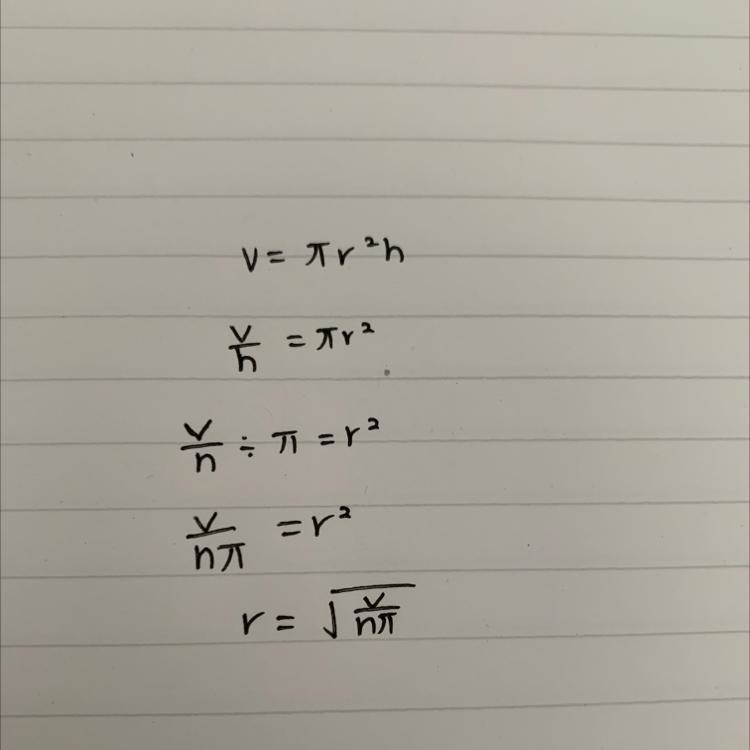 V = πr²h
V/h = πr²
V/h ÷ π = r²
V/hπ = r²
r = √(V/hπ)